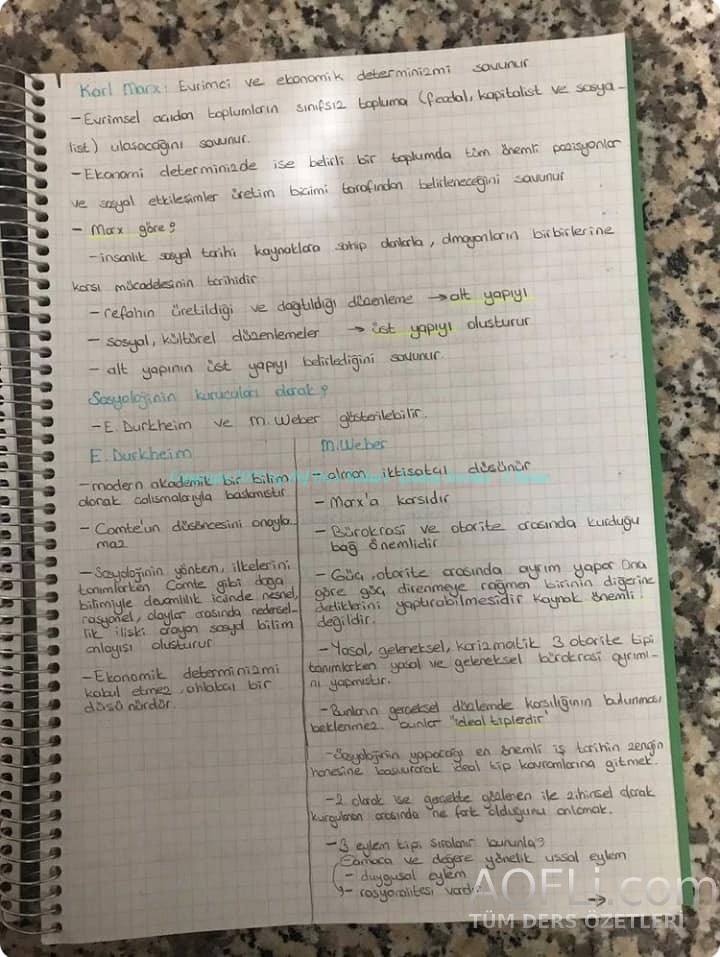 Karl Marx: Evrimci ve ekonomik determinizmi savunur
- Evrimsel açıdan toplumların sınıfsız topluma (feodal, kapitalist ve sosya-
list) ulaşacağını savunur.
- Ekonomi determinizde ise belirli bir toplumda tüm önemli pozisyonlar
ve sosyal etkileşimler üretim biçimi tarafından belirleneceğini savunur
- Marx göre?
- insanlık sosyal tarihi kaynaklara sahip olanlarla, olmayanların birbirlerine
karşı mücaddesinin tarihidir
- refahın üretildiği ve dağıtıldığı düzenleme → alt yapıyı
- sosyal, kültürel düzenlemeler → üst yapıyı oluşturur
- alt yapının üst yapıyı belirlediğini savunur.
Sosyolojinin kurucuları olarak?
- E. Durkheim ve M. Weber gösterilebilir.
E. Durkheim
- modern akademik bir bilim
olarak çalışmalarıyla başlamıştır
- Comte'un düşüncesini onayla
maz
- Sosyolojinin yöntem, ilkelerini
tanımlarken Comte gibi doğa
bilimiyle devamlılık içinde nesnel,
rasyonel, olaylar arasında nedensel-
lik ilişki arayan sosyal bilim
anlayışı oluşturur
- Ekonomik determinizmi
kabul etmez, ahlakçı bir
düşünürdür.
M. Weber
- alman iktisatçı düşünür
- Marx'a karşıdır
- Bürokrasi ve otorite arasında kurduğu
bağ önemlidir
- Güç, otorite arasında ayrım yapar. Ona
göre güç direnmeye rağmen birinin diğerine
dediklerini yaptırabilmesidir kaynak önemli
değildir.
- Yasal, geleneksel, karizmatik 3 otorite tipi
tanımlarken yasal ve geleneksel bürokrasi ayrımı-
nı yapmıştır.
- Bunların gerçeksel düzlemde karşılığının bulunması
beklenmez. bunlar "ideal tiplerdir"
- Sosyolojinin yapacağı en önemli iş tarihin zengin
hanesine başvurarak ideal tip kavramlarına gitmek.
- 2. olarak ise gerçekte gözlenen ile zihinsel olarak
kurgulanan arasında ne fark olduğunu anlamak.
- 3 eylem tipi sıralanır bununla?
amaca ve değere yönelik ussal eylem
- duygusal eylem
- rasyonalitesi vardır
→
AÖFLi.com
TÜM DERS ÖZETLERİ